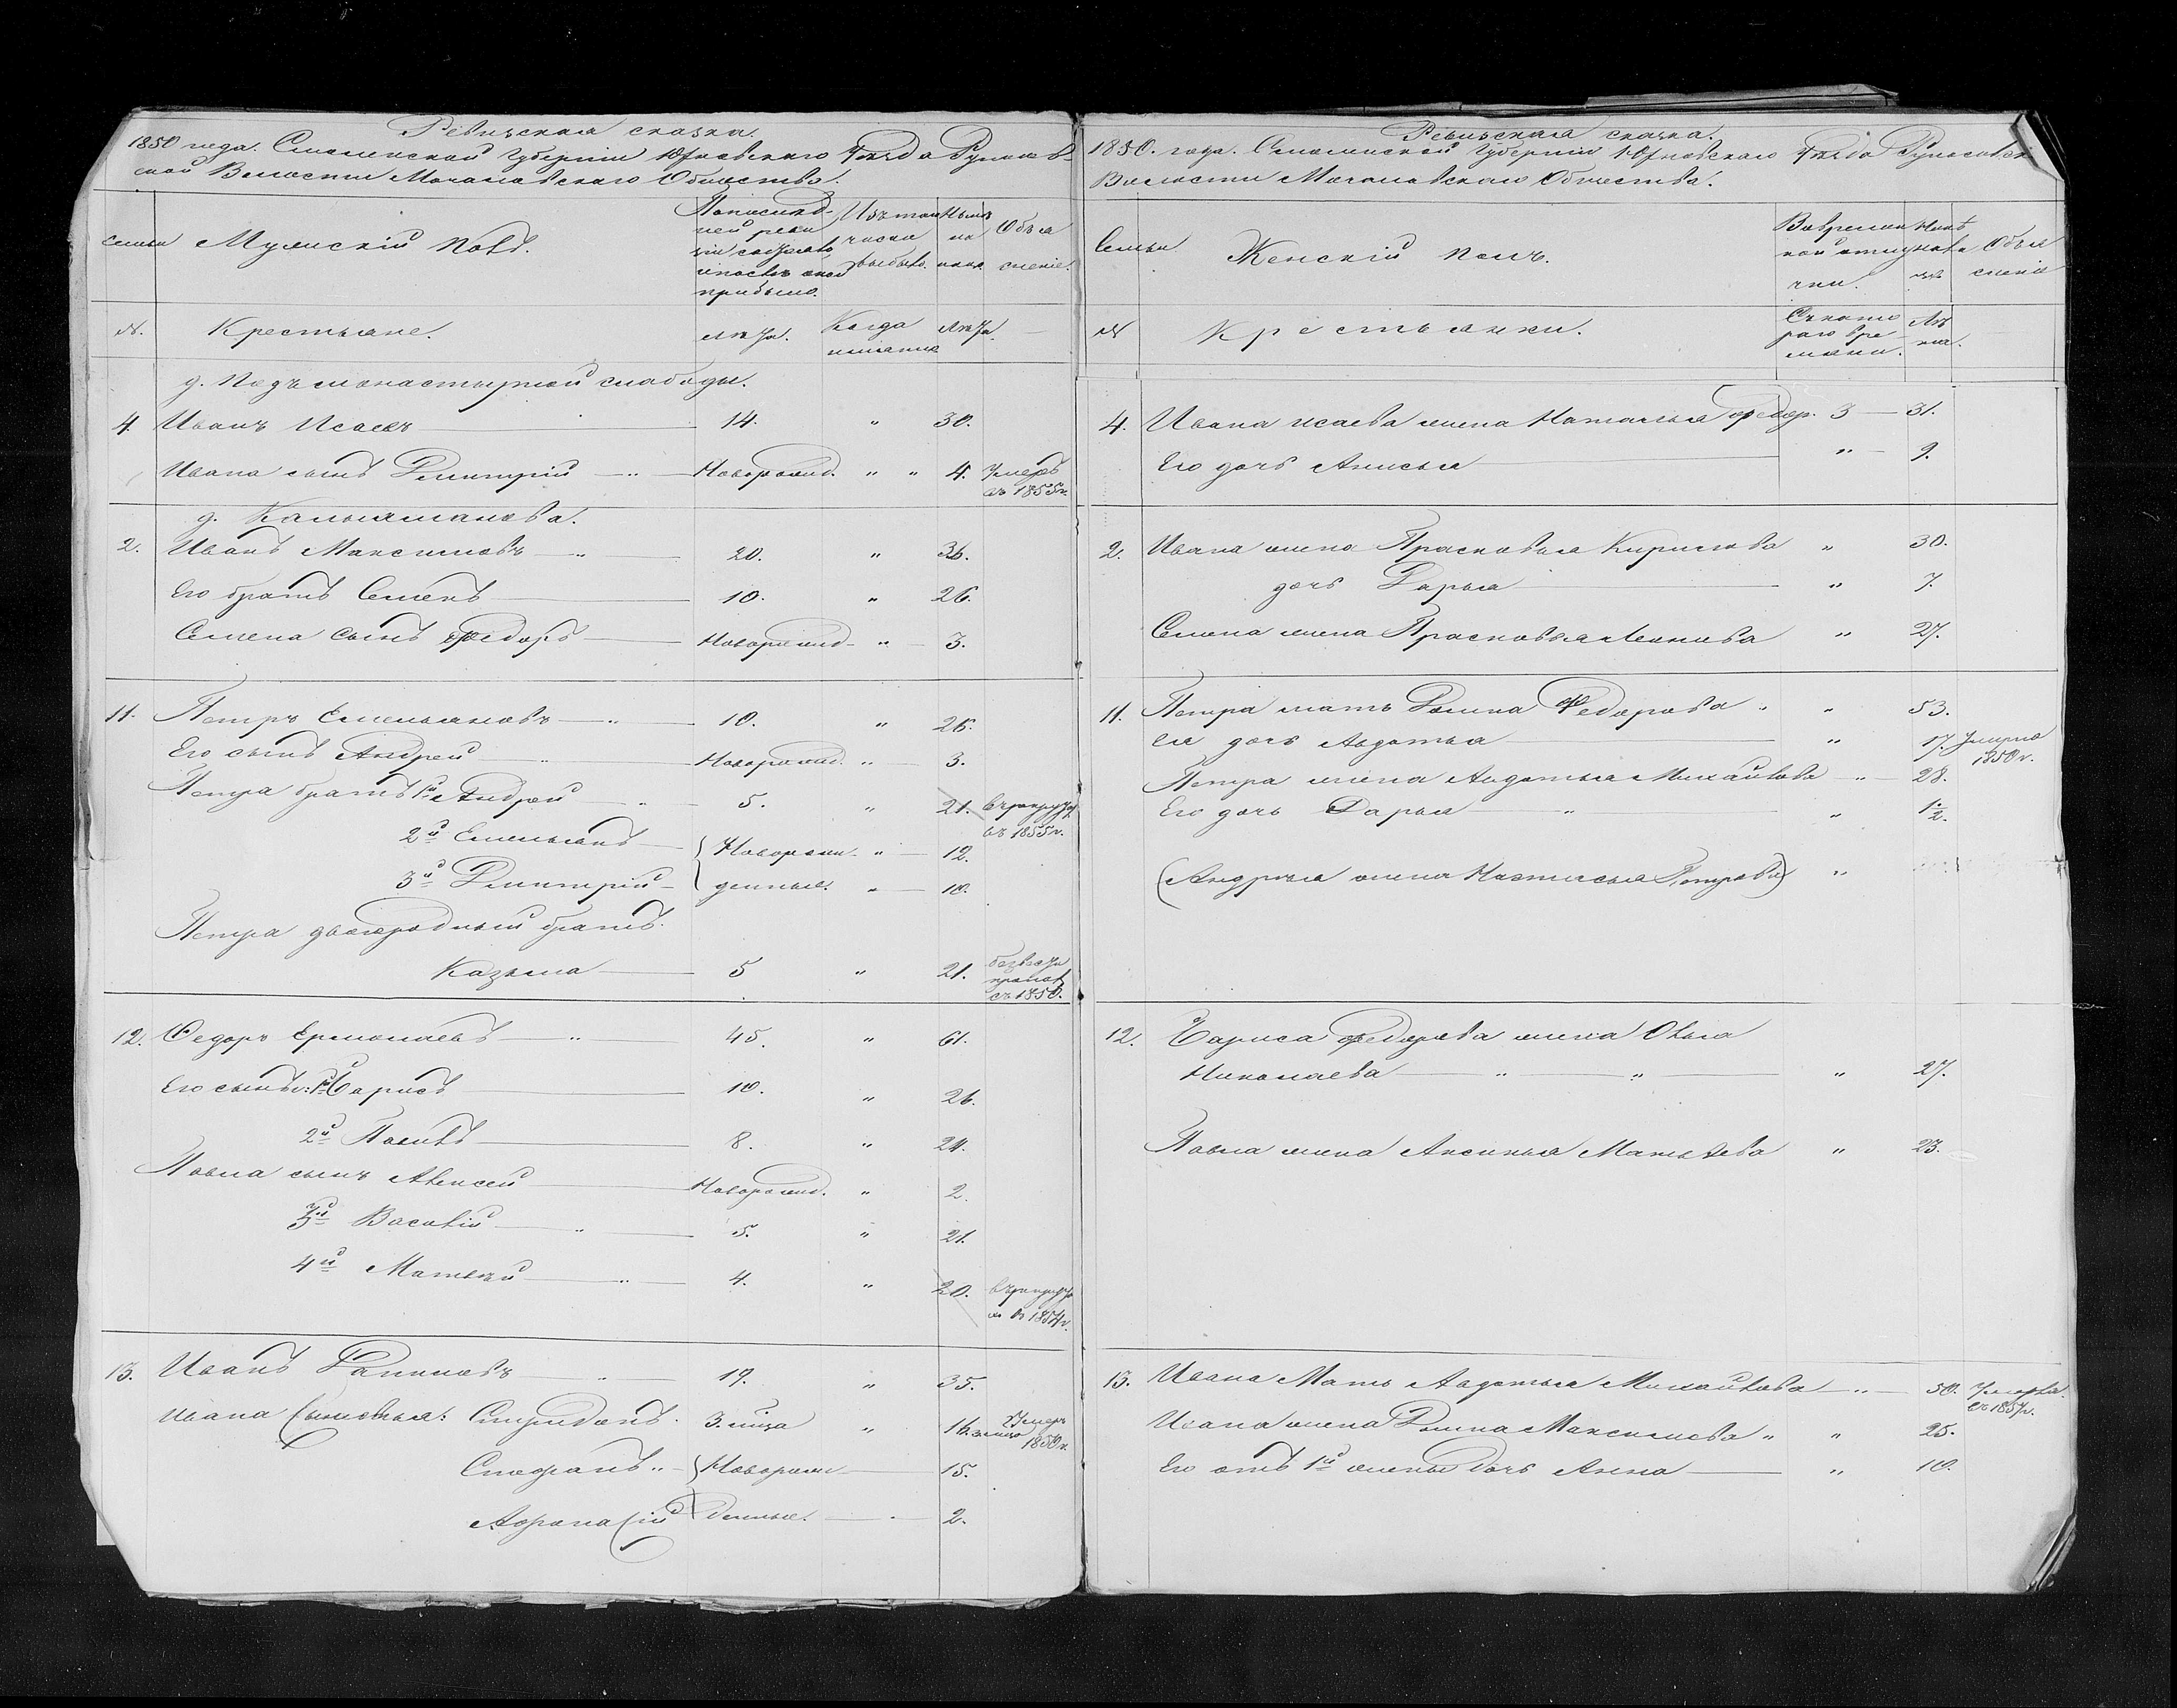 Ревизская сказка.
1850 года. Смоленской Губерніи Юхновскаго Уѣзда Рупосов-
ской Волости Мочаловскаго Общества.
Семьи
Мужескій полъ.
По послѣд-
ней реви
зіи состояло
и послѣ оной
прибыло.
Изъ того
числа
выбыло.
Нынѣ
на
лицо
Объя
сненіе.
№.
Крестьяне.
лѣта.
Когда
именно
лѣта.
д. Подъмонастырной слабоды.
4. Иванъ Исаевъ 14. " 30.
Ивана сынъ Дмитрій " Новорожд. " " 4. Умеръ
въ 1855г.
д. Калыманова.
2. Иванъ Максимовъ " 20. " 36.
Его братъ Семенъ 10. " 26.
Семена сынъ Федоръ Новорожд " 3.
11. Петръ Емельяновъ " 10. " 26.
Его сынъ Андрей " Новорожд. " 3.
Петра братъ 1й Андрей " 5. " 21. въ рекруты
въ 1855г.
2й Емельянъ Новорож " 12.
3й Дмитрій денные. " 10.
Петра двоюродный братъ.
Казьма 5 " 21. безвести
пропалъ
съ 1850.
12. Федоръ Ермолаевъ " 45. " 61.
Его сынъ: 1й Борисъ 10. " 26.
2й Павелъ 8. " 24.
Павла сынъ Алексей Новорожд. " 2.
3й Василій " 5. " 21.
4й Матвей " 4. " 20. въ рекруты
въ 1854г.
13. Иванъ Даниловъ " 19. " 35.
Ивана Сыновья: Спиридонъ. 3. мѣца " 16. Умеръ
1850г.
Стефанъ " Новорож 15.
Афонасій денные. 2.
Ревизская сказка.
1850. года. Смоленской Губерніи Юхновскаго Уѣзда
Волости Мочаловскаго Общества.
Семьи
Женскій полъ.
Во времен
ной отлу
чки.
Нынѣ
на ли
цо
Объя
сненіе
№
Крестьянки.
Съ кото
раго вре-
мени.
Лѣ
та.
4. Ивана Исаева жена Наталья Федор. 3 31.
Его дочь Анисья " 9.
2. Ивана жена Прасковья Кирилова " 30.
дочь Дарья " 7.
Семена жена Прасковья Леонова " 27.
11. Петра мать Домна Федорова " " 53.
ея дочь Авдотья " 17. Умерла
1850г.
Петра жена Авдотья Михайлова " 28.
Его дочь Дарья " " 1½.
(Андрея жена Настасья Петрова) "
12. Бориса Федорова жена Ольга
Николаева " " " 27.
Павла жена Аксинья Матвѣева " 23.
13. Ивана Мать Авдотья Михайлова " 50. Умерла
въ 1857г.
Ивана жена Домна Максимова " " 25.
Его отъ 1й жены дочь Анна " 10.